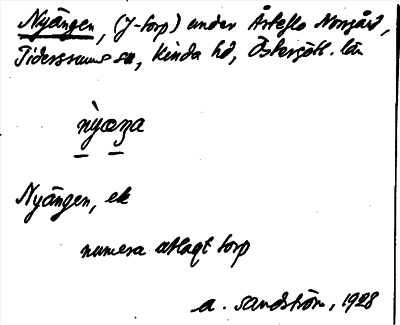 Nyängen, (J-torp) under Årteflo Norrgård,
Tidersrums sn, Kinda hd, Östergötl. län
nỳæŋa
Nyängen, ek
numera avlagt torp
A. Sandström, 1928